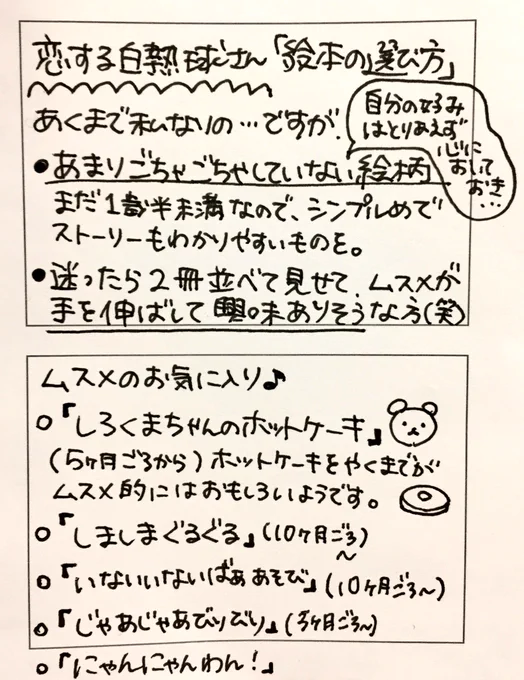 恋する白熱球さん「絵本の選び方」
あくまで私なりの…ですが、
自分の好み
はとりあえず
心に
おして
おき
…
●あまりごちゃごちゃしていない絵柄
まだ1歳半未満なので、シンプルめで
ストーリーもわかりやすいものを。
●迷ったら2冊並べて見せて、ムスメが
手を伸ばして興味ありそうな方(笑)
ムスメのお気に入り♪
○「しろくまちゃんのホットケーキ」
(5ヶ月ごろから)ホットケーキをやくまでが
ムスメ的にはおもしろいようです。
○「しましまぐるぐる」(10ヶ月ごろ
〜)
○「いないいないばぁあそび」(10ヶ月ごろ〜)
○「じゃあじゃあびりびり」(ヶ月ごろ〜)
○「にゃんにゃんわん！」